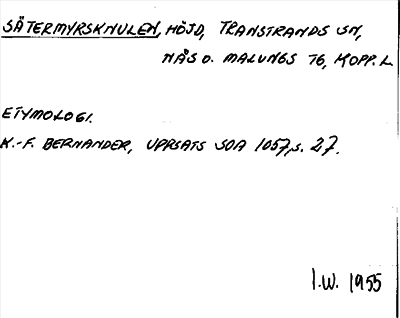 SÄTERMYRSKNULEN, HÖJD, TRANSTRANDS SN,
NÅS O. MALUNGS TG, KOPP. L
ETYMOLOGI.
K.-F. BERNANDER, UPPSATS SOA 1057, s. 27.
I.W. 1955